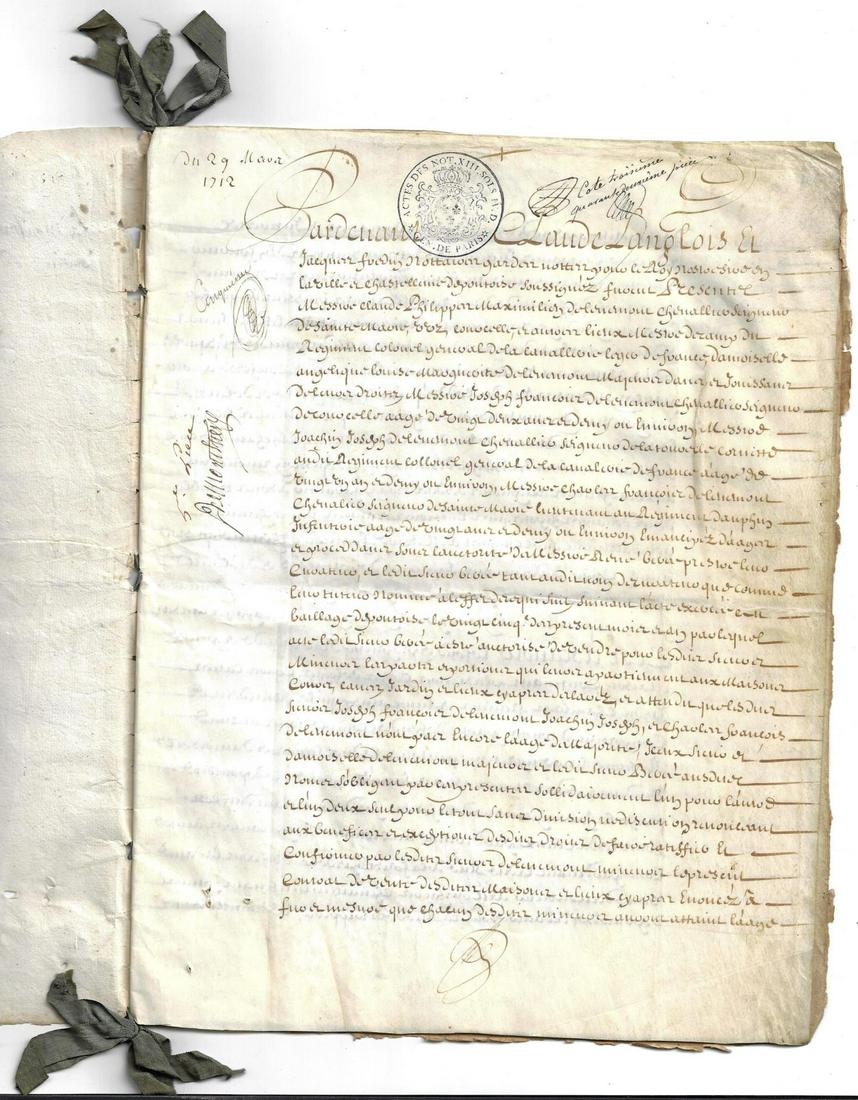 Du 29 Mars
1712
ACTES DES NOT. XIII. SOLS IV. D.
GEN. DE PARIS
Cote troisieme
quarante deuxieme piece
Pardevant Claude Langlois Et
Jacques fredin Nottaires gardes nottes pour le Roy nostre sire en
la ville et chastellenie de pontoise soussignez furent Presentes
Messire claude Philippes Maximilien delienemont chevallier seigneur
de sainte Marie, et autres lieux Mestre de camp du
Regiment colonel general de la cavallerie legere de france, damoiselle
angelique Louise Marguerite delienemont Majeurs dans et Jouissans
de leurs droits, Messire Joseph francois delienemont chevallier seigneur
aagé de vingt deux ans et demy ou Environ, Messire
Joachim Joseph delienemont chevallier seigneur de la tournelle cornette
audit Regiment collonel general de la cavalerie de france aagé de
vingt un an et demy ou Environ, Messire charles francois delienemont
chevalier seigneur de sainte Marie lieutenant au Regiment dauphin
Infanterie aagé de vingt ans et demy ou Environ Emancipez d'aage
et proceddans sous l'auctorité de Messire René prestre leur
Curateur, et ledit sieur tant audit nom de curateur que comme
leur tuteur Nommé a l'effet de ce qui suit suivant l'acte exercée en
baillage de pontoise le vingt cinq des present mois et an par lequel
acte ledit sieur a esté auctorisé de vendre pour lesdits sieurs
Mineurs les parts et portions qui leurs apartiennent aux Maisons
Cours, caves Jardin et lieux cy apres declarez, et attendu que lesdits
sieurs Joseph francois delienemont Joachim Joseph, et charles francois
delienemont n'ont pas Encore l'aage de Majorité, Iceux sieur et
damoiselle delienemont majeurs et ledit sieur ausdits
Noms s'obligent par les presentes sollidairement l'un pour l'autre
et l'un deux seul pour le tout sans division ne discution renonceant
aux benefices et exceptions desdits droits de faire ratiffier Et
Confirmer par lesdits sieurs delienemont mineurs le present
Contrat de vente desdites Maisons et lieux cy apres Enoncéz
fur et mesure que chacun desdits mineurs auront attaint l'aage